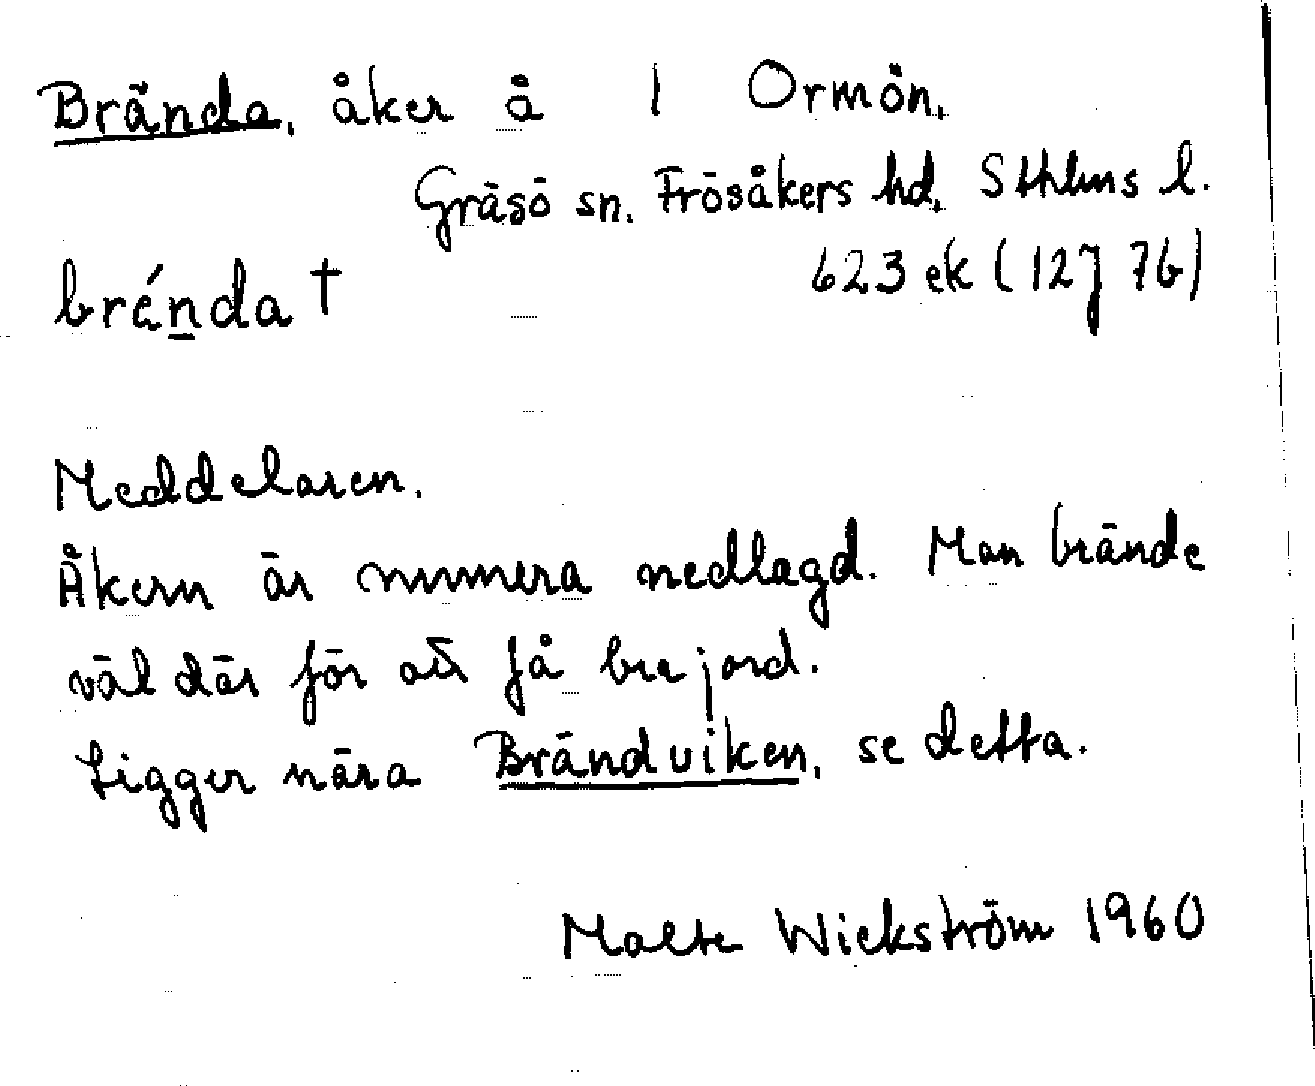 Brända, åker å 1 Ormön,
Gräsö sn. Frösåkers hd, Sthlms l.
brén̲da † 623 ek (12J 7b)
Meddelaren.
Åkern är nummera nedlagd. Man brände
väl där för att få bre jord.
Ligger nära Brändviken, se detta.
Malte Wickström 1960